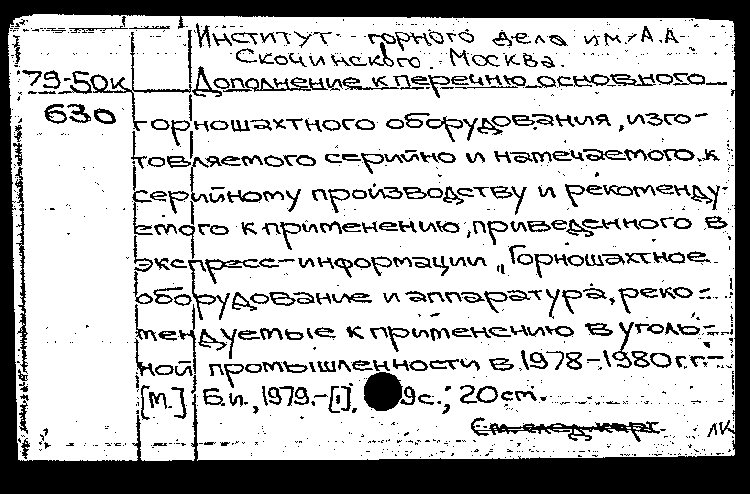 Институт горного дела им. А.А.
Скочинского. Москва.
79-50к Дополнение к перечню основного
630 горношахтного оборудования, изго-
товляемого серийно и намечаемого к
серийному производству и рекоменду-
емого к применению, приведенного в
экспресс-информации „Горношахтное
оборудование и аппаратура, реко-
мендуемые к применению в уголь-
ной промышленности в 1978-1980г.г.-
[М.] Б.и., 1979.-[1], 9с.; 20см.
См. след. карт. ЛК